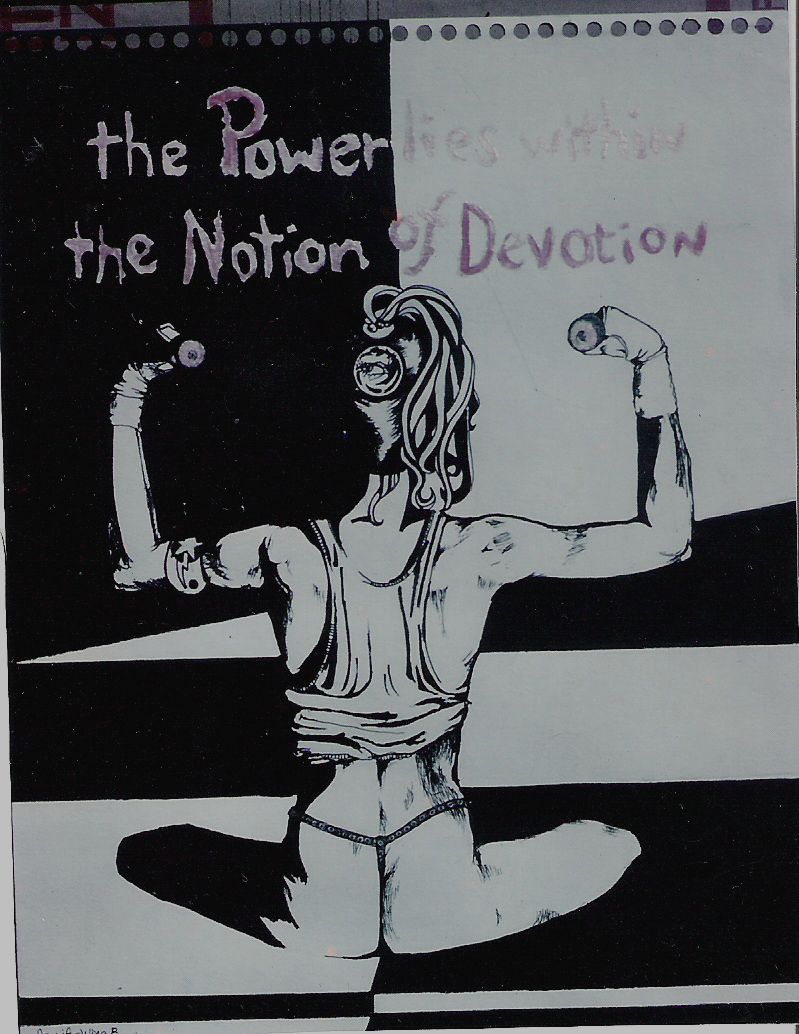 the Power lies within
the Notion of Devotion